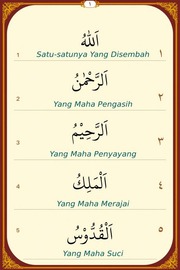 ١
1 اَللّٰهُ ١
Satu-satunya Yang Disembah
2 اَلرَّحْمٰنُ ٢
Yang Maha Pengasih
3 اَلرَّحِيْمُ ٣
Yang Maha Penyayang
4 اَلْمَلِكُ ٤
Yang Maha Merajai
5 اَلْقُدُّوْسُ ٥
Yang Maha Suci